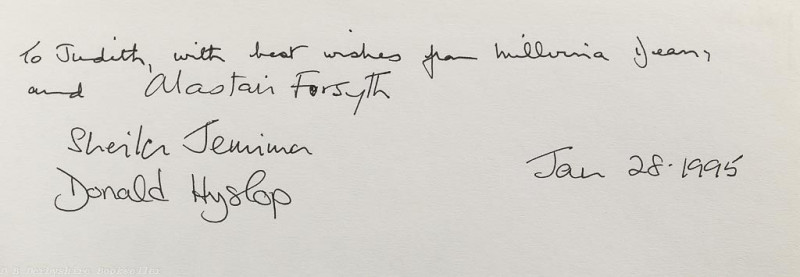 To Judith, with best wishes from Millvina Dean,
and Alastair Forsyth
Sheila Jemima
Donald Hyslop
Jan 28·1995